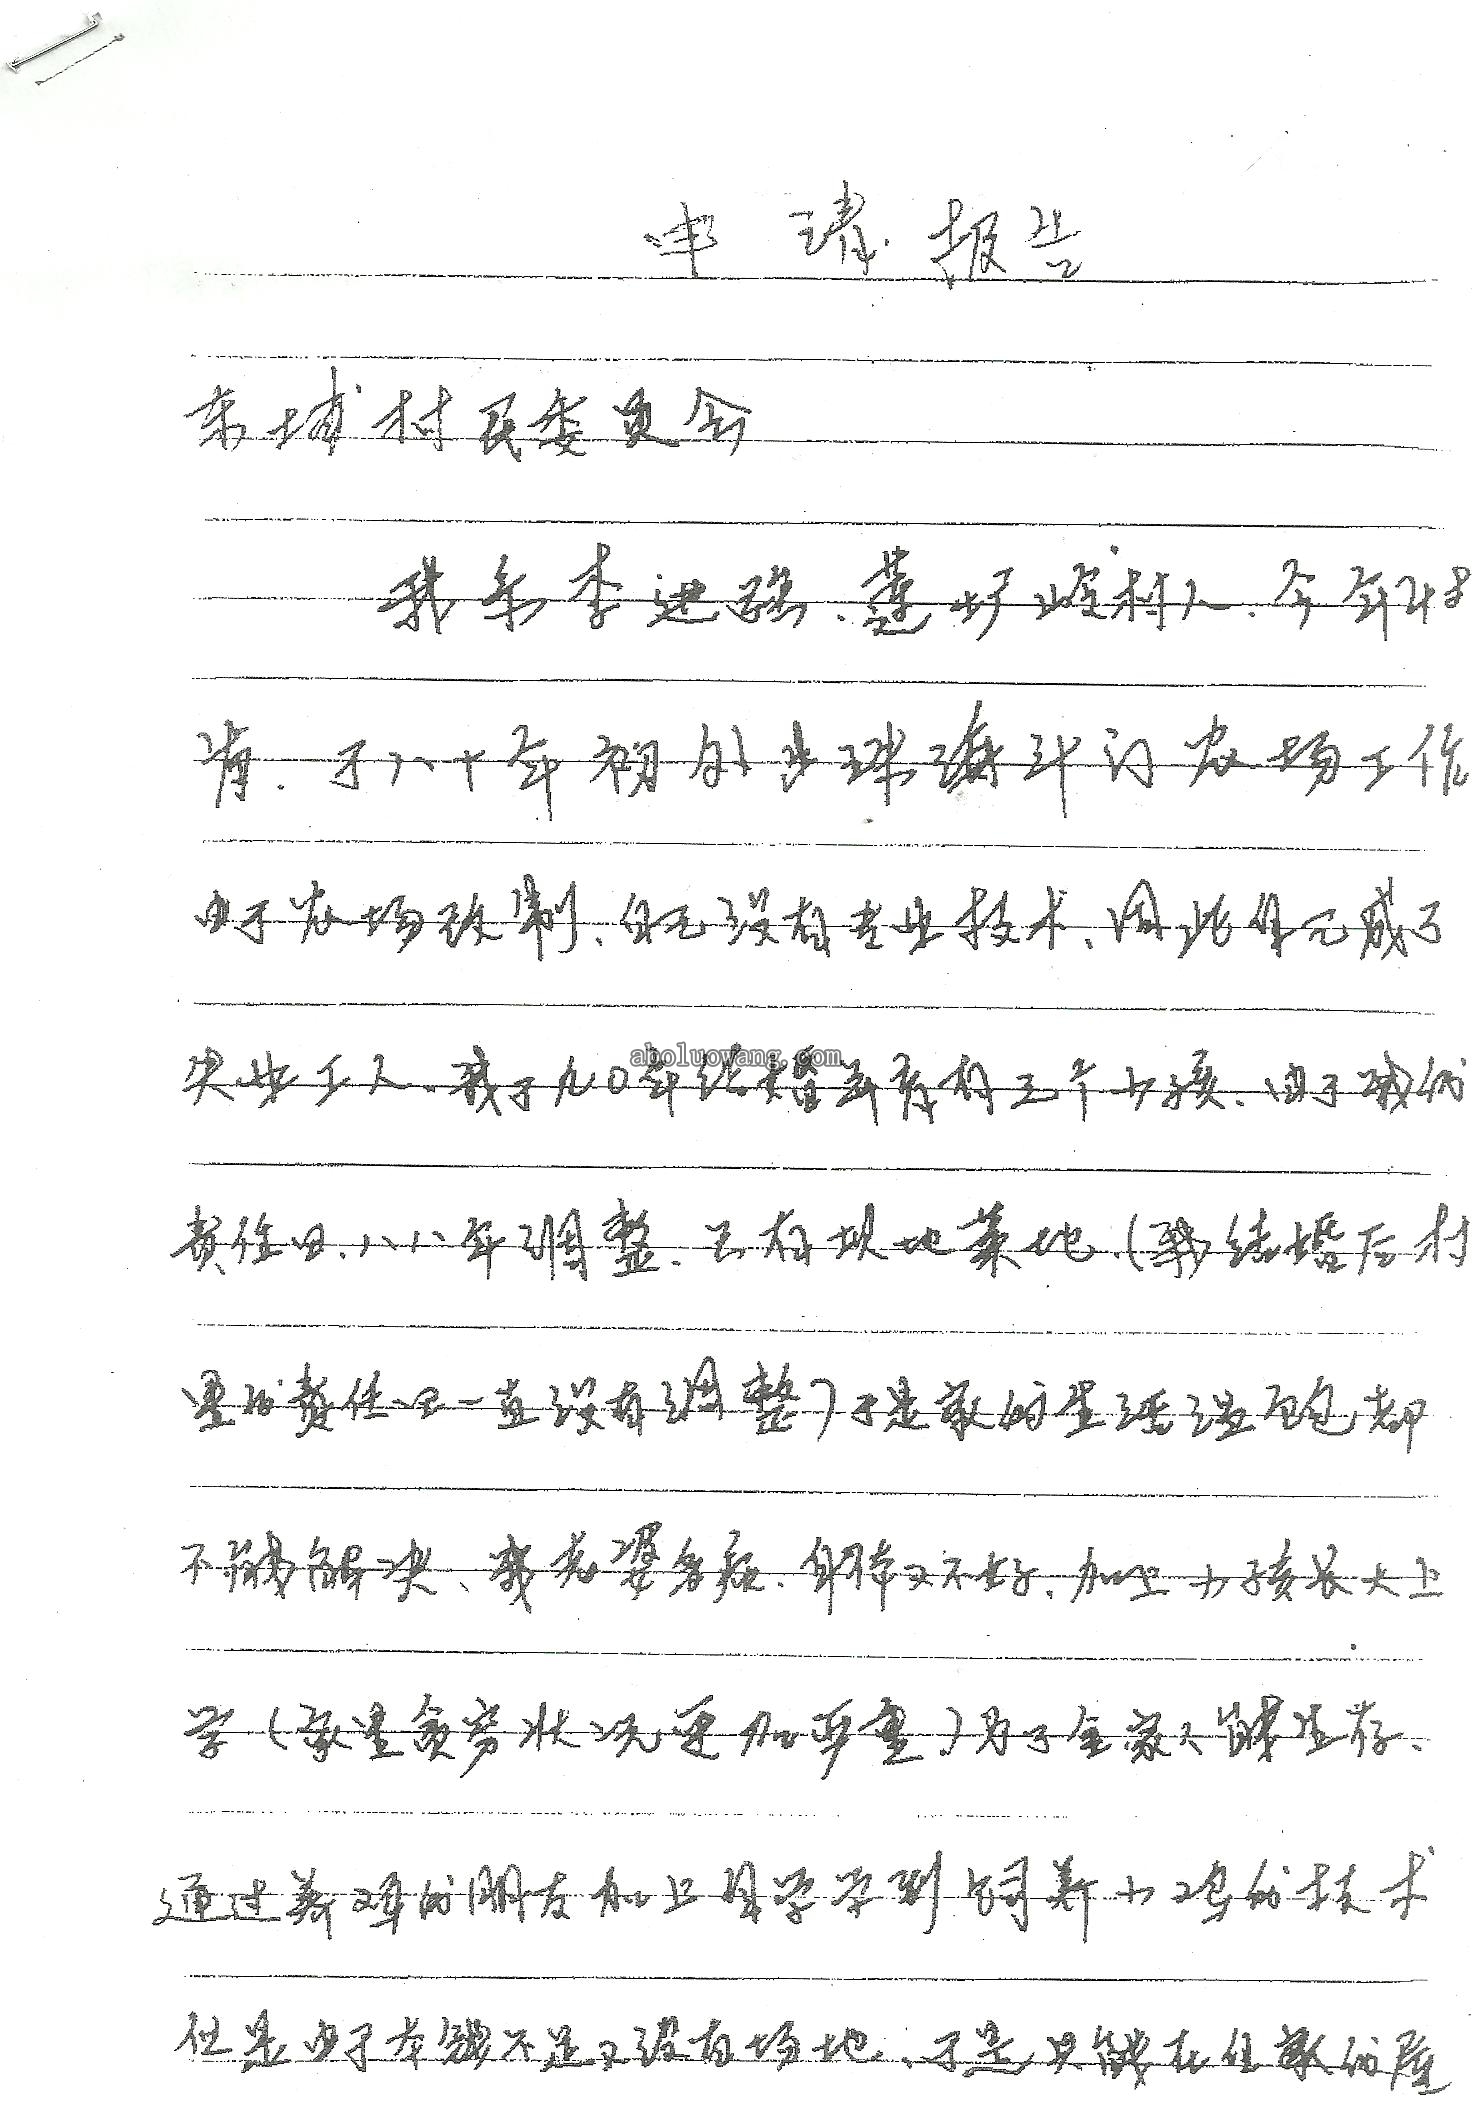 申请报告
东埔村民委员会
我系李进强、莲好崆村人、今年48
岁.于八十年初外出珠海斗门农场工作
由于农场改制、自己没有专业技术、因此自己成了
失业工人、我于九0年结婚并育有三个小孩、由于我的
aboluowang.com
责任田、八八年调整、只有坝地菜地、(我结婚后村
里的责任田一直没有调整)于是家的生活温饱都
不能解决、我老婆多病、身体又不好、加上小孩长大上
学(家里贫穷状况更加严重)为了全家人能生存、
通过养鸡的朋友加上自学学到饲养小鸡的技术
但是由于本钱不足又没有场地、于是只能在住家的屋